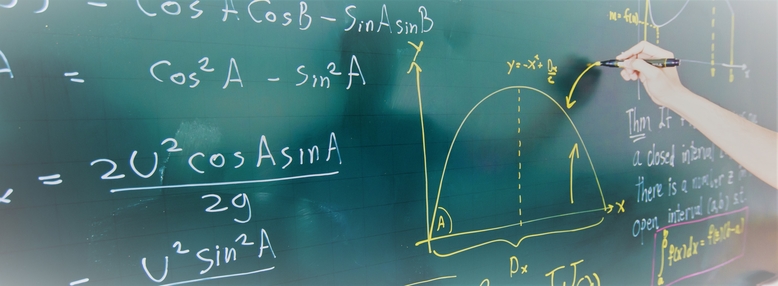 = Cos A Cos B - Sin A sin B
A = Cos² A - Sin² A
= 2U² cos A sin A
2g
= U² sin² A
Y
y = -x² + Dx/2
A
X
Dx
m = f(x)
Thm If
a closed interval
there is a number z
open interval (a,b) s.t.
∫ f(x)dx = f(z)(b-a)